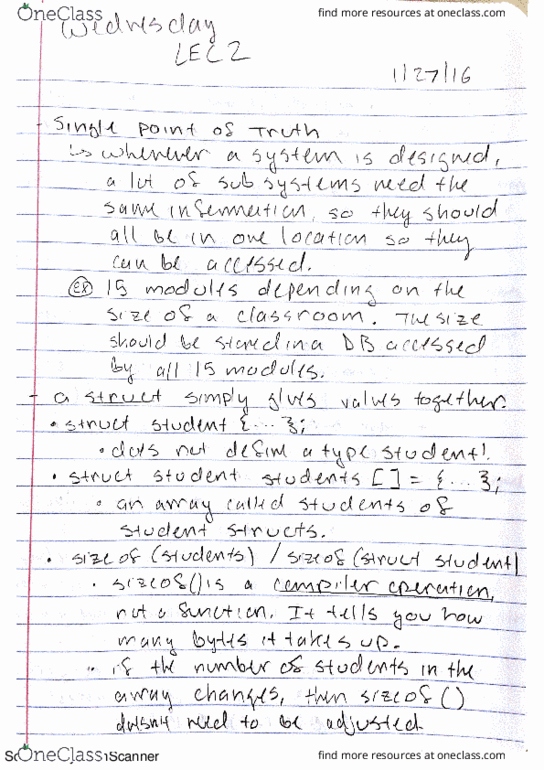 OneClass find more resources at oneclass.com
Wednesday
LEC 2
1/27/16
- Single point of Truth
↳ whenever a system is designed,
a lot of subsystems need the
same information, so they should
all be in one location so they
can be accessed.
(EX) 15 modules depending on the
size of a classroom. The size
should be stored in a DB accessed
by all 15 modules.
- a struct simply glues values together.
• struct student {...};
• does not define a type student!
• struct student students [] = {...};
• an array called students of
student structs.
• sizeof (students) / sizeof (struct student)
• sizeof() is a compiler operation,
not a function. It tells you how
many bytes it takes up.
• if the number of students in the
array changes, then sizeof ()
doesn't need to be adjusted.
OneClass Scanner find more resources at oneclass.com